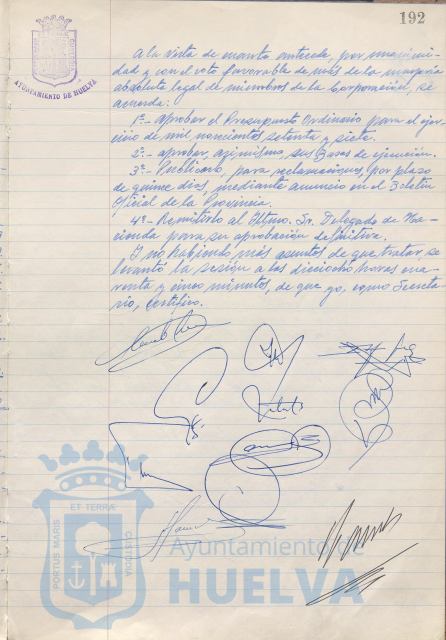 192
AYUNTAMIENTO DE HUELVA
A la vista de cuanto antecede, por unanimi-
dad y con el voto favorable de más de la mayoría
absoluta legal de miembros de la Corporación, se
acuerda:
1º.- aprobar el Presupuesto Ordinario para el ejer-
cicio de mil novecientos setenta y siete.
2º.- aprobar, asimismo, sus Bases de ejecución.
3º.- Publicarlo, para reclamaciones, por plazo
de quince días, mediante anuncio en el Boletín
Oficial de la Provincia.
4º.- Remitirlo al Iltmo. Sr. Delegado de Ha-
cienda para su aprobación definitiva.
Y no habiendo más asuntos de que tratar se
levantó la sesión a las dieciocho horas cua-
renta y cinco minutos, de que yo, como Secreta
rio, certifico.
PORTUS MARIS ET TERRÆ CUSTODIA
Ayuntamiento de
HUELVA